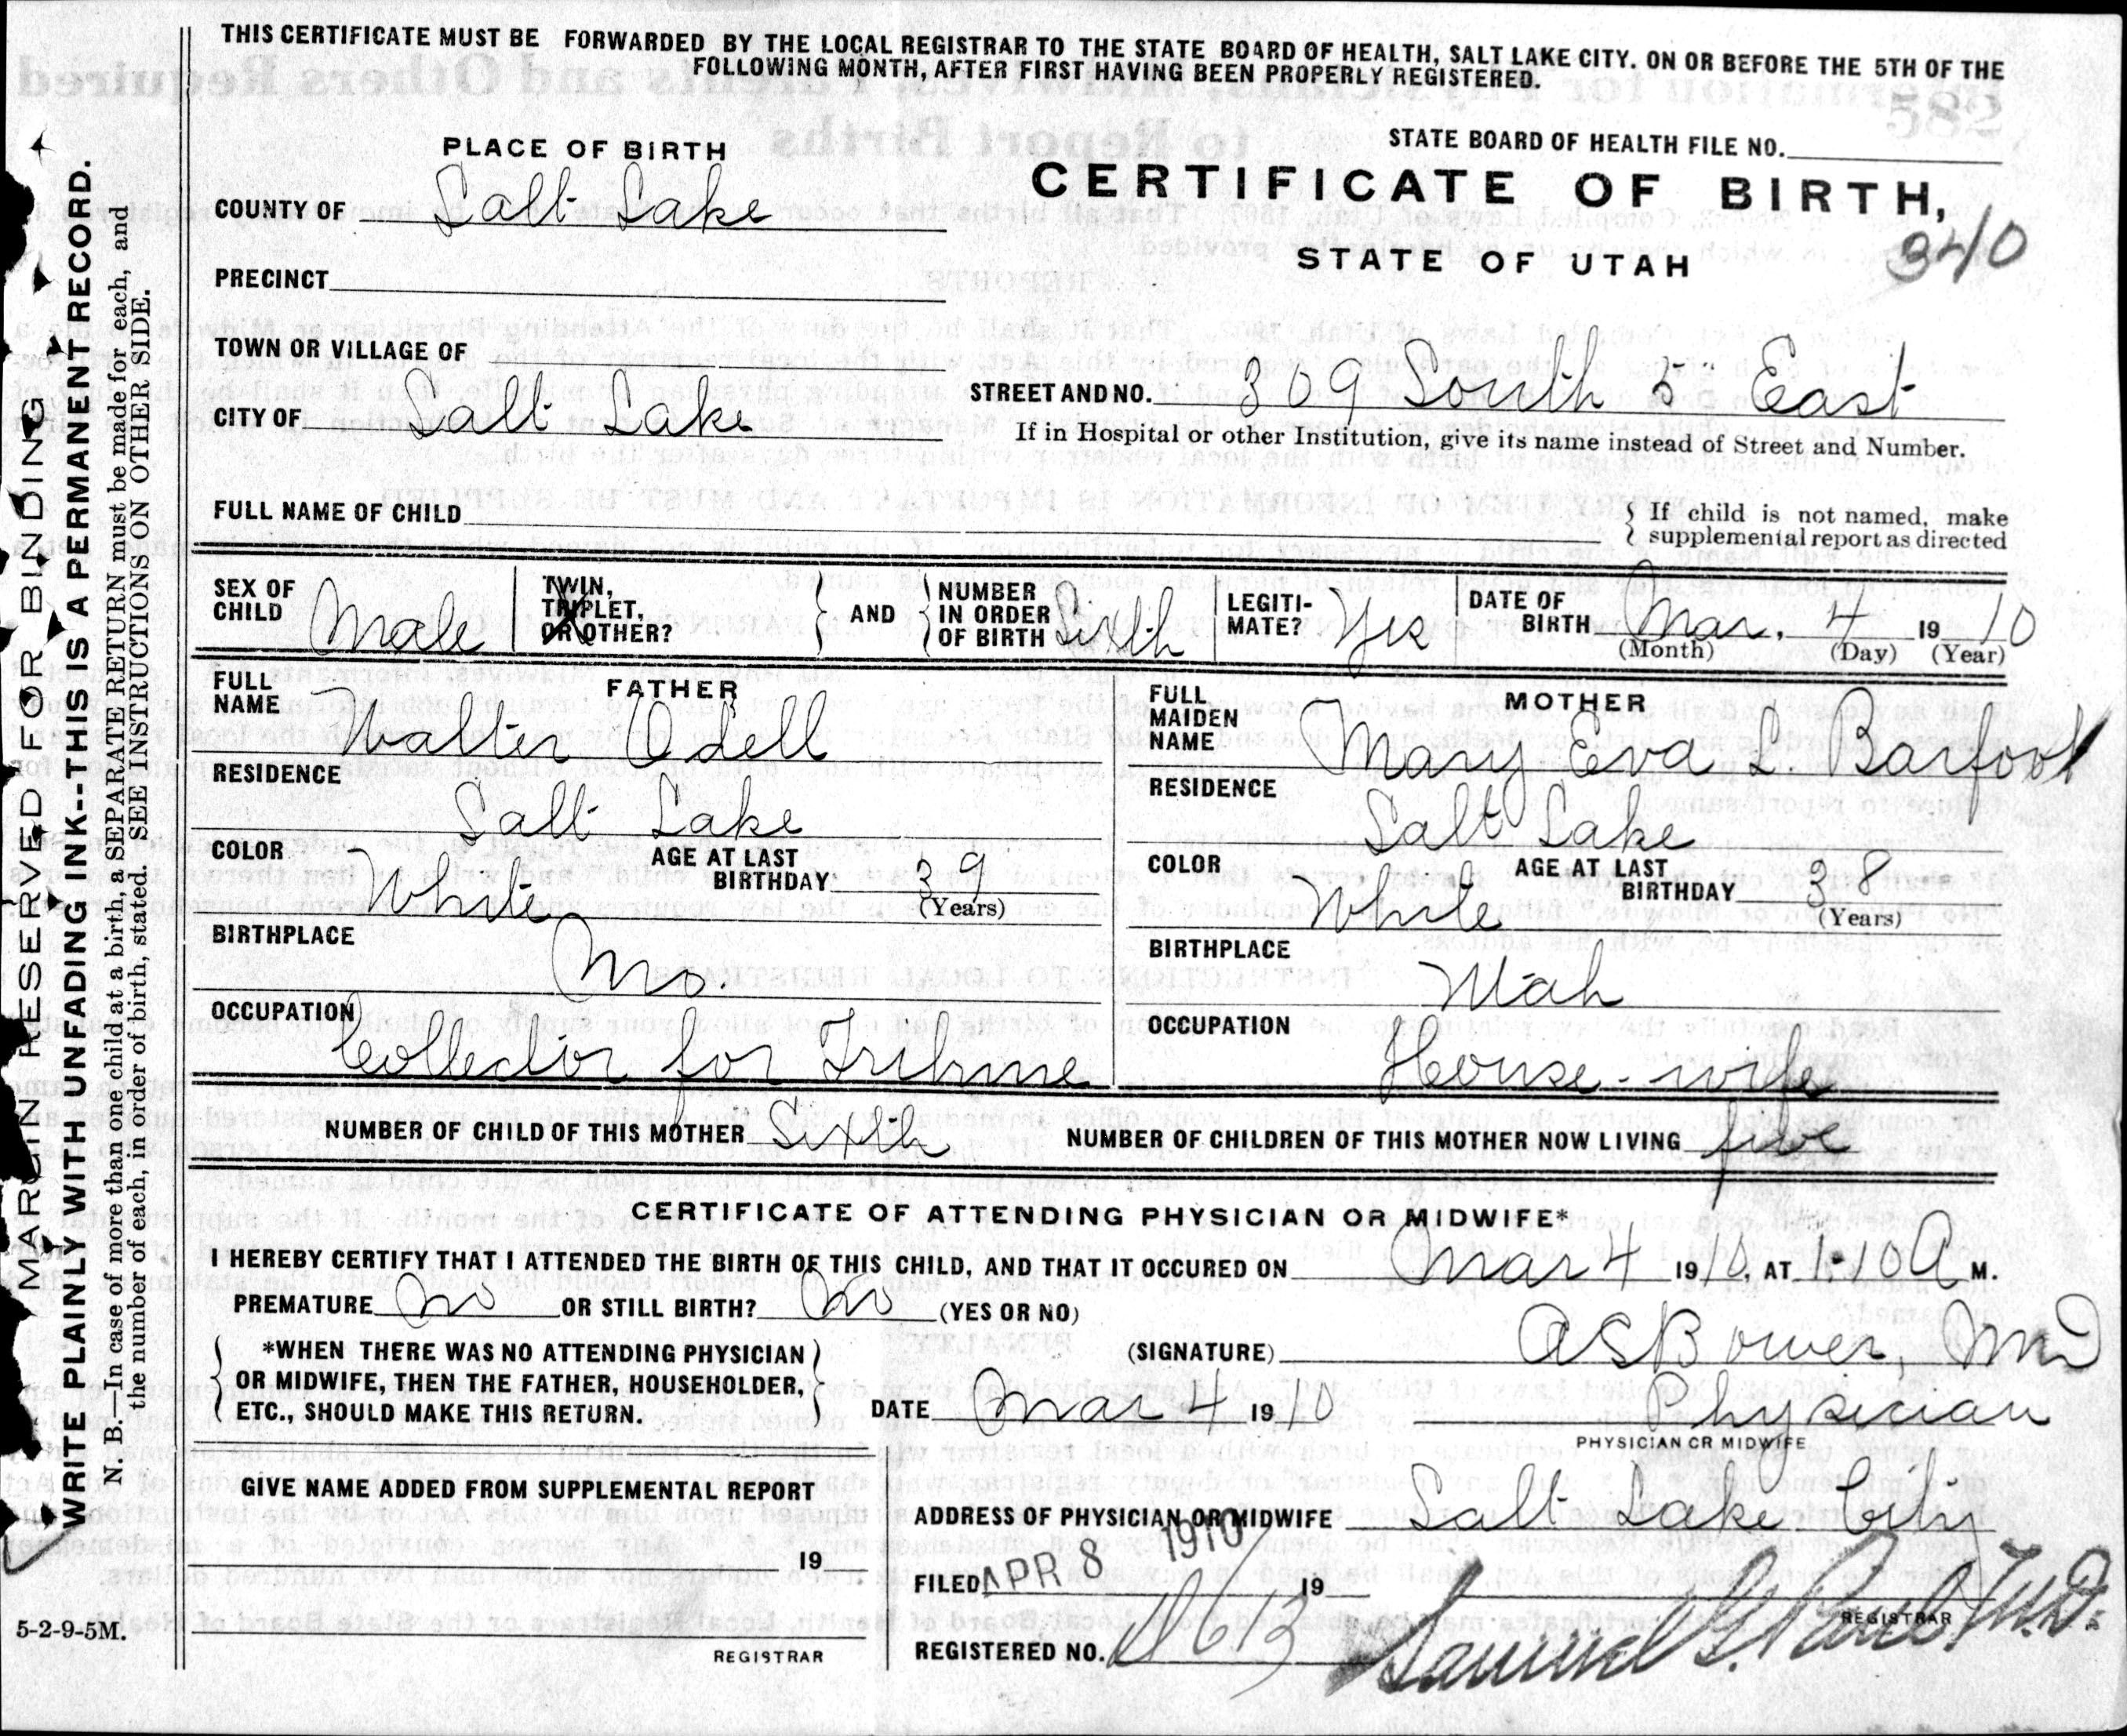 THIS CERTIFICATE MUST BE FORWARDED BY THE LOCAL REGISTRAR TO THE STATE BOARD OF HEALTH, SALT LAKE CITY. ON OR BEFORE THE 5TH OF THE
FOLLOWING MONTH, AFTER FIRST HAVING BEEN PROPERLY REGISTERED.
MARGIN RESERVED FOR BINDING
WRITE PLAINLY WITH UNFADING INK--THIS IS A PERMANENT RECORD.
N. B.—In case of more than one child at a birth, a SEPARATE RETURN must be made for each, and
the number of each, in order of birth, stated. SEE INSTRUCTIONS ON OTHER SIDE.
PLACE OF BIRTH
STATE BOARD OF HEALTH FILE NO.
COUNTY OF Salt Lake
CERTIFICATE OF BIRTH,
340
STATE OF UTAH
PRECINCT
TOWN OR VILLAGE OF
STREET AND NO. 309 South 5" East
CITY OF Salt Lake
If in Hospital or other Institution, give its name instead of Street and Number.
FULL NAME OF CHILD
{ If child is not named, make
supplemental report as directed
SEX OF CHILD Male
TWIN, TRIPLET, OR OTHER? } AND { NUMBER IN ORDER OF BIRTH Sixth
LEGITIMATE? Yes
DATE OF BIRTH Mar. 4 1910
(Month) (Day) (Year)
FATHER
FULL NAME Walter Odell
MOTHER
FULL MAIDEN NAME Mary Eva L Barfoot
RESIDENCE Salt Lake
RESIDENCE Salt Lake
COLOR White AGE AT LAST BIRTHDAY 39 (Years)
COLOR White AGE AT LAST BIRTHDAY 38 (Years)
BIRTHPLACE Mo.
BIRTHPLACE Utah
OCCUPATION Collector for Tribune
OCCUPATION House-wife
NUMBER OF CHILD OF THIS MOTHER Sixth NUMBER OF CHILDREN OF THIS MOTHER NOW LIVING five
CERTIFICATE OF ATTENDING PHYSICIAN OR MIDWIFE*
I HEREBY CERTIFY THAT I ATTENDED THE BIRTH OF THIS CHILD, AND THAT IT OCCURED ON Mar 4 1910, AT 1-10 A M.
PREMATURE no OR STILL BIRTH? no (YES OR NO)
{ *WHEN THERE WAS NO ATTENDING PHYSICIAN
OR MIDWIFE, THEN THE FATHER, HOUSEHOLDER,
ETC., SHOULD MAKE THIS RETURN. }
(SIGNATURE) A S Bower, MD
DATE Mar 4 1910
Physician
PHYSICIAN OR MIDWIFE
GIVE NAME ADDED FROM SUPPLEMENTAL REPORT
19
REGISTRAR
ADDRESS OF PHYSICIAN OR MIDWIFE Salt Lake City
FILED APR 8 1910 19
REGISTRAR
REGISTERED NO.
Samuel G. Paul M.D.
5-2-9-5M.